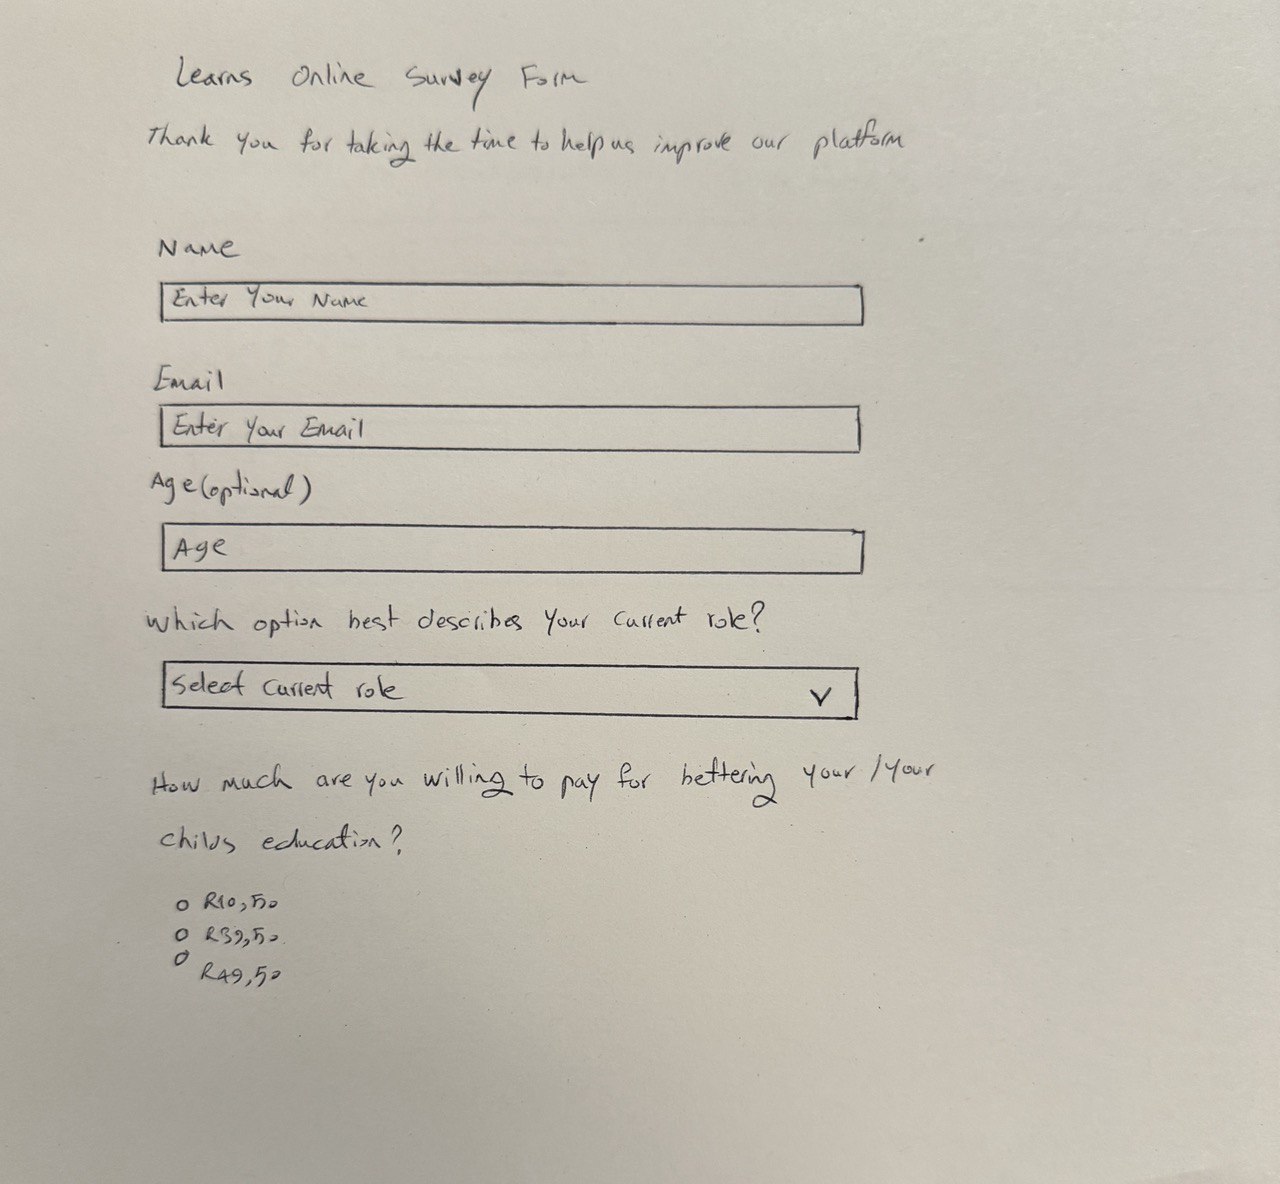 Learns Online Survey Form
Thank you for taking the time to help us improve our platform
Name
Enter Your Name
Email
Enter Your Email
Age (optional)
Age
Which option best describes your current role?
Select current role
How much are you willing to pay for bettering your / your
childs education?
R10,50
R39,50
R49,50